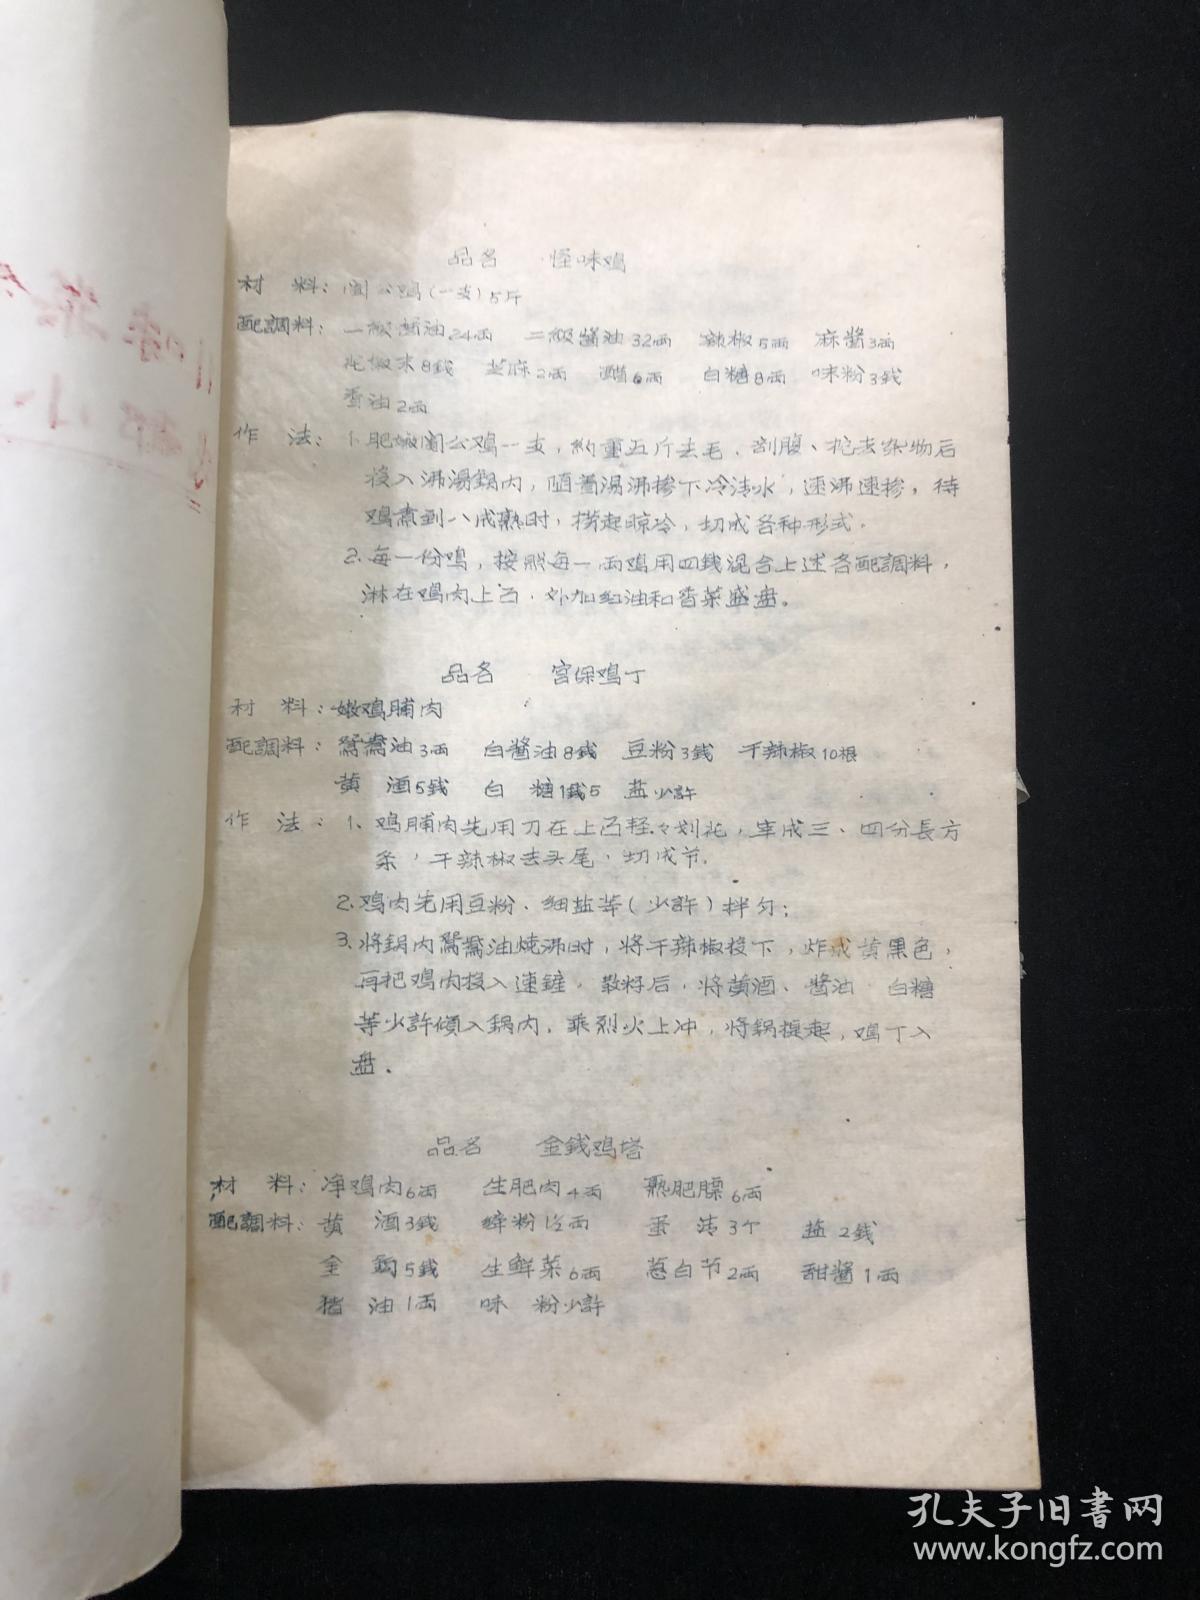 品名　怪味鸡
材　料：阉公鸡（一支）5斤
配調料：一級醬油24兩　二級醬油32兩　辣椒5兩　麻醬3兩
花椒末8錢　芝麻2兩　醋6兩　白糖8兩　味粉3錢
香油2兩
作　法：1.肥嫩阉公鸡一支，約重五斤去毛、剖腹、挖去杂物后
投入沸湯鍋内，随着湯沸掺下冷清水，速沸速掺，待
鸡煮到八成熟时，捞起晾冷，切成各种形式。
2.每一份鸡，按照每一兩鸡用四錢混合上述各配調料，
淋在鸡肉上面，外加紅油和香菜盛盘。
品名　宫保鸡丁
材　料：嫩鸡脯肉
配調料：鴛鴦油3兩　白醬油8錢　豆粉3錢　干辣椒10根
黄　酒5錢　白　糖1錢5　盐少許
作　法：1、鸡脯肉先用刀在上面轻々划花，宰成三、四分長方
条，干辣椒去头尾，切成节。
2.鸡肉先用豆粉、细盐等（少許）拌匀；
3.将鍋内鴛鴦油燒沸时，将干辣椒投下，炸成黄黑色，
再把鸡肉投入速鏟，散籽后，将黄酒、醬油　白糖
等少許傾入鍋内，乘烈火上冲，将锅提起，鸡丁入
盘．
品名　金錢鸡塔
材　料：净鸡肉6兩　生肥肉4兩　熟肥膘6兩
配調料：黄　酒3錢　縴粉1½兩　蛋　清3个　盐2錢
金　鈎5錢　生鮮菜6兩　葱白节2兩　甜醬1兩
猪　油1兩　味　粉少許
孔夫子旧书网
www.kongfz.com